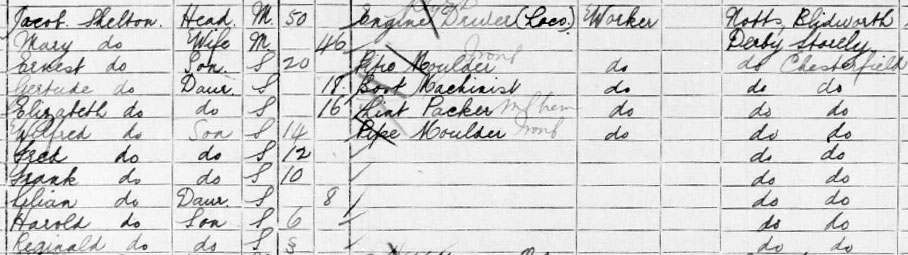 Jacob Shelton. Head. M. 50 Engine Driver (Loco.) Worker Notts, Blidworth
Mary do Wife M. 46 Derby
Ernest do Son S 20 Pipe Moulder do do Chesterfield
Gertude do Daur. S 18. Boot Machinist do do do
Elizabeth do do S 16 Lint Packer do do do
Wilfred do Son S 14 Pipe Moulder do do do
Fred do do S 12 do do
Frank do do S 10 do do
Lilian do Daur. S 8 do do
Harold do Son S 6 do do
Reginald do do S do do